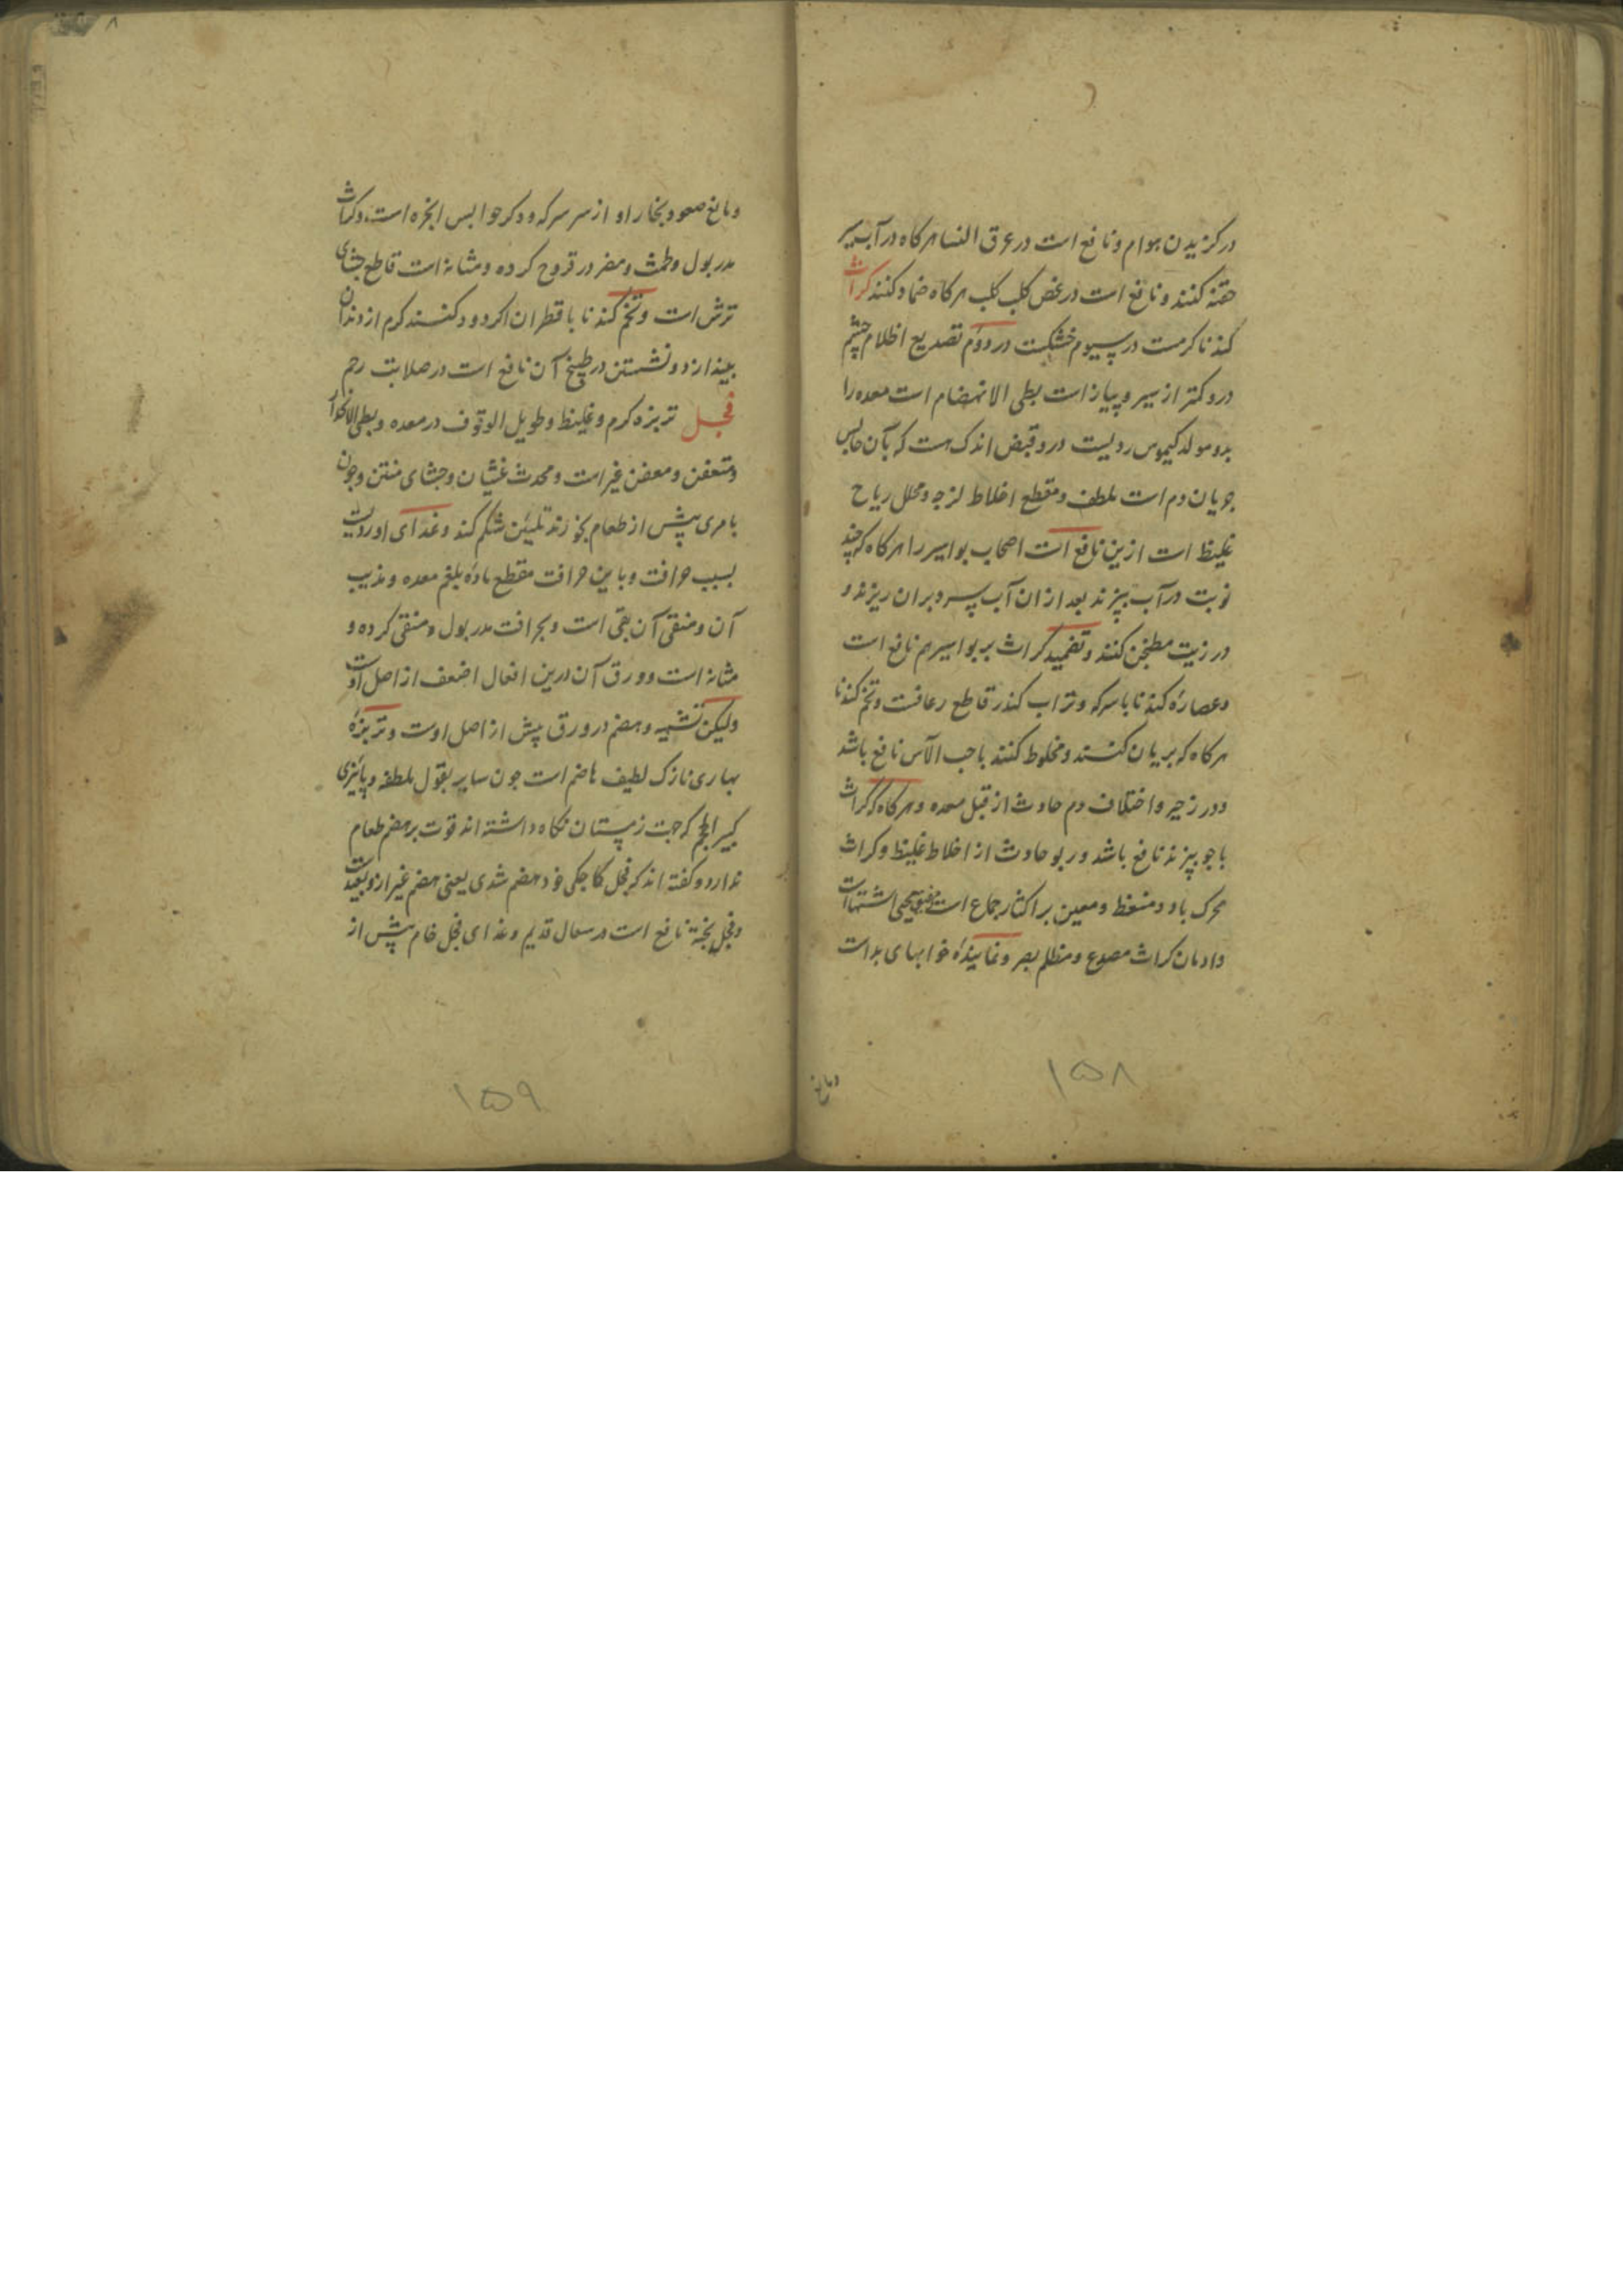 در کزیدن هوام و نافع است در عرق النسا هر کاه در آب سیر
حقنه کنند و نافع است در عض کلب کلب هر کاه ضماد کنند کراث
کندنا کرمست در سیوم خشکست در دوم تصدیع اظلام چشم
درو کمتر از سیر و پیاز است بطی الانهضام است معده را
بد و مولد کیموس ردیست درو قبض اندک هست که بآن حابس
جریان دم است ملطف و مقطع اخلاط لزجه و محلل ریاح
غلیظ است ازین نافع است اصحاب بواسیر را هر کاه که چند
نوبت در آب بپزند بعد از ان آب سرد بران ریزند و
در زیت مطجن کنند و تضمید کراث بر بواسیر هم نافع است
و عصاره کندنا با سرکه و تراب کندر قاطع رعافست و تخم کندنا
هر کاه که بریان کنند و مخلوط کنند با حب الآس نافع باشد
در زحیر و اختلاف دم حادث از قبل معده و هر کاه که کراث
با جو بپزند نافع باشد در بو حادث از اخلاط غلیظ و کراث
محرک باه و منعظ و معین بر اکثار جماع است اشتهاست
و ادمان کراث مصدع و مظلم بصر و نمایندهٔ خوابهای بد است
و مانع
۱۵۸
و مانع صعود بخار او از سر سرکه و دکر حوابس ابخره است و کراث
مدر بول و طمث و مضر در قروح کرده و مثانه است قاطع جشای
ترش است و تخم کندنا با قطران اکر دود کنند کرم از دندان
بیندازد و نشستن در طبیخ آن نافع است در صلابت رحم
فجل تربزه کرم و غلیظ و طویل الوقوف در معده و بطی الانحدار
و متعفن و معفن غیر است و محدث غثیان و جشای منتن و چون
با مری پیش از طعام بخورند تلیین شکم کند و غذای او ردیست
بسبب حرافت و باین حرافت مقطع مادهٔ بلغم معده و مذیب
آن و منقی آن بقی است و بحرافت مدر بول و منقی کرده و
مثانه است و ورق آن درین افعال اضعف از اصل اوست
ولیکن تشهیه و هضم در ورق بیش از اصل اوست و تربزهٔ
بهاری نازک لطیف هاضم است جون سایر بقول ملطفه و پائیزی
کبیر الحجم که جهت زمستان نکاه داشته اند قوت بر هضم طعام
ندارد و کفته اند که فجل کاجکی خود هضم شدی یعنی هضم غیر ازو بعیدست
و فجل پخته نافع است در سعال قدیم و غذای فجل خام پیش از
۱۵۹